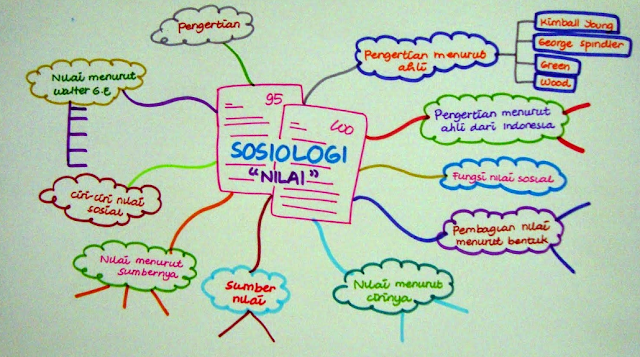 Pengertian
Pengertian menurut
ahli
Kimball Young
George Spindler
Green
Wood
Nilai menurut
Walter G.E
95
100
SOSIOLOGI
"NILAI"
Pengertian menurut
ahli dari Indonesia
Fungsi nilai sosial
Ciri-ciri nilai
sosial
Pembagian nilai
menurut bentuk
Nilai menurut
sumbernya
Sumber
nilai
Nilai menurut
cirinya